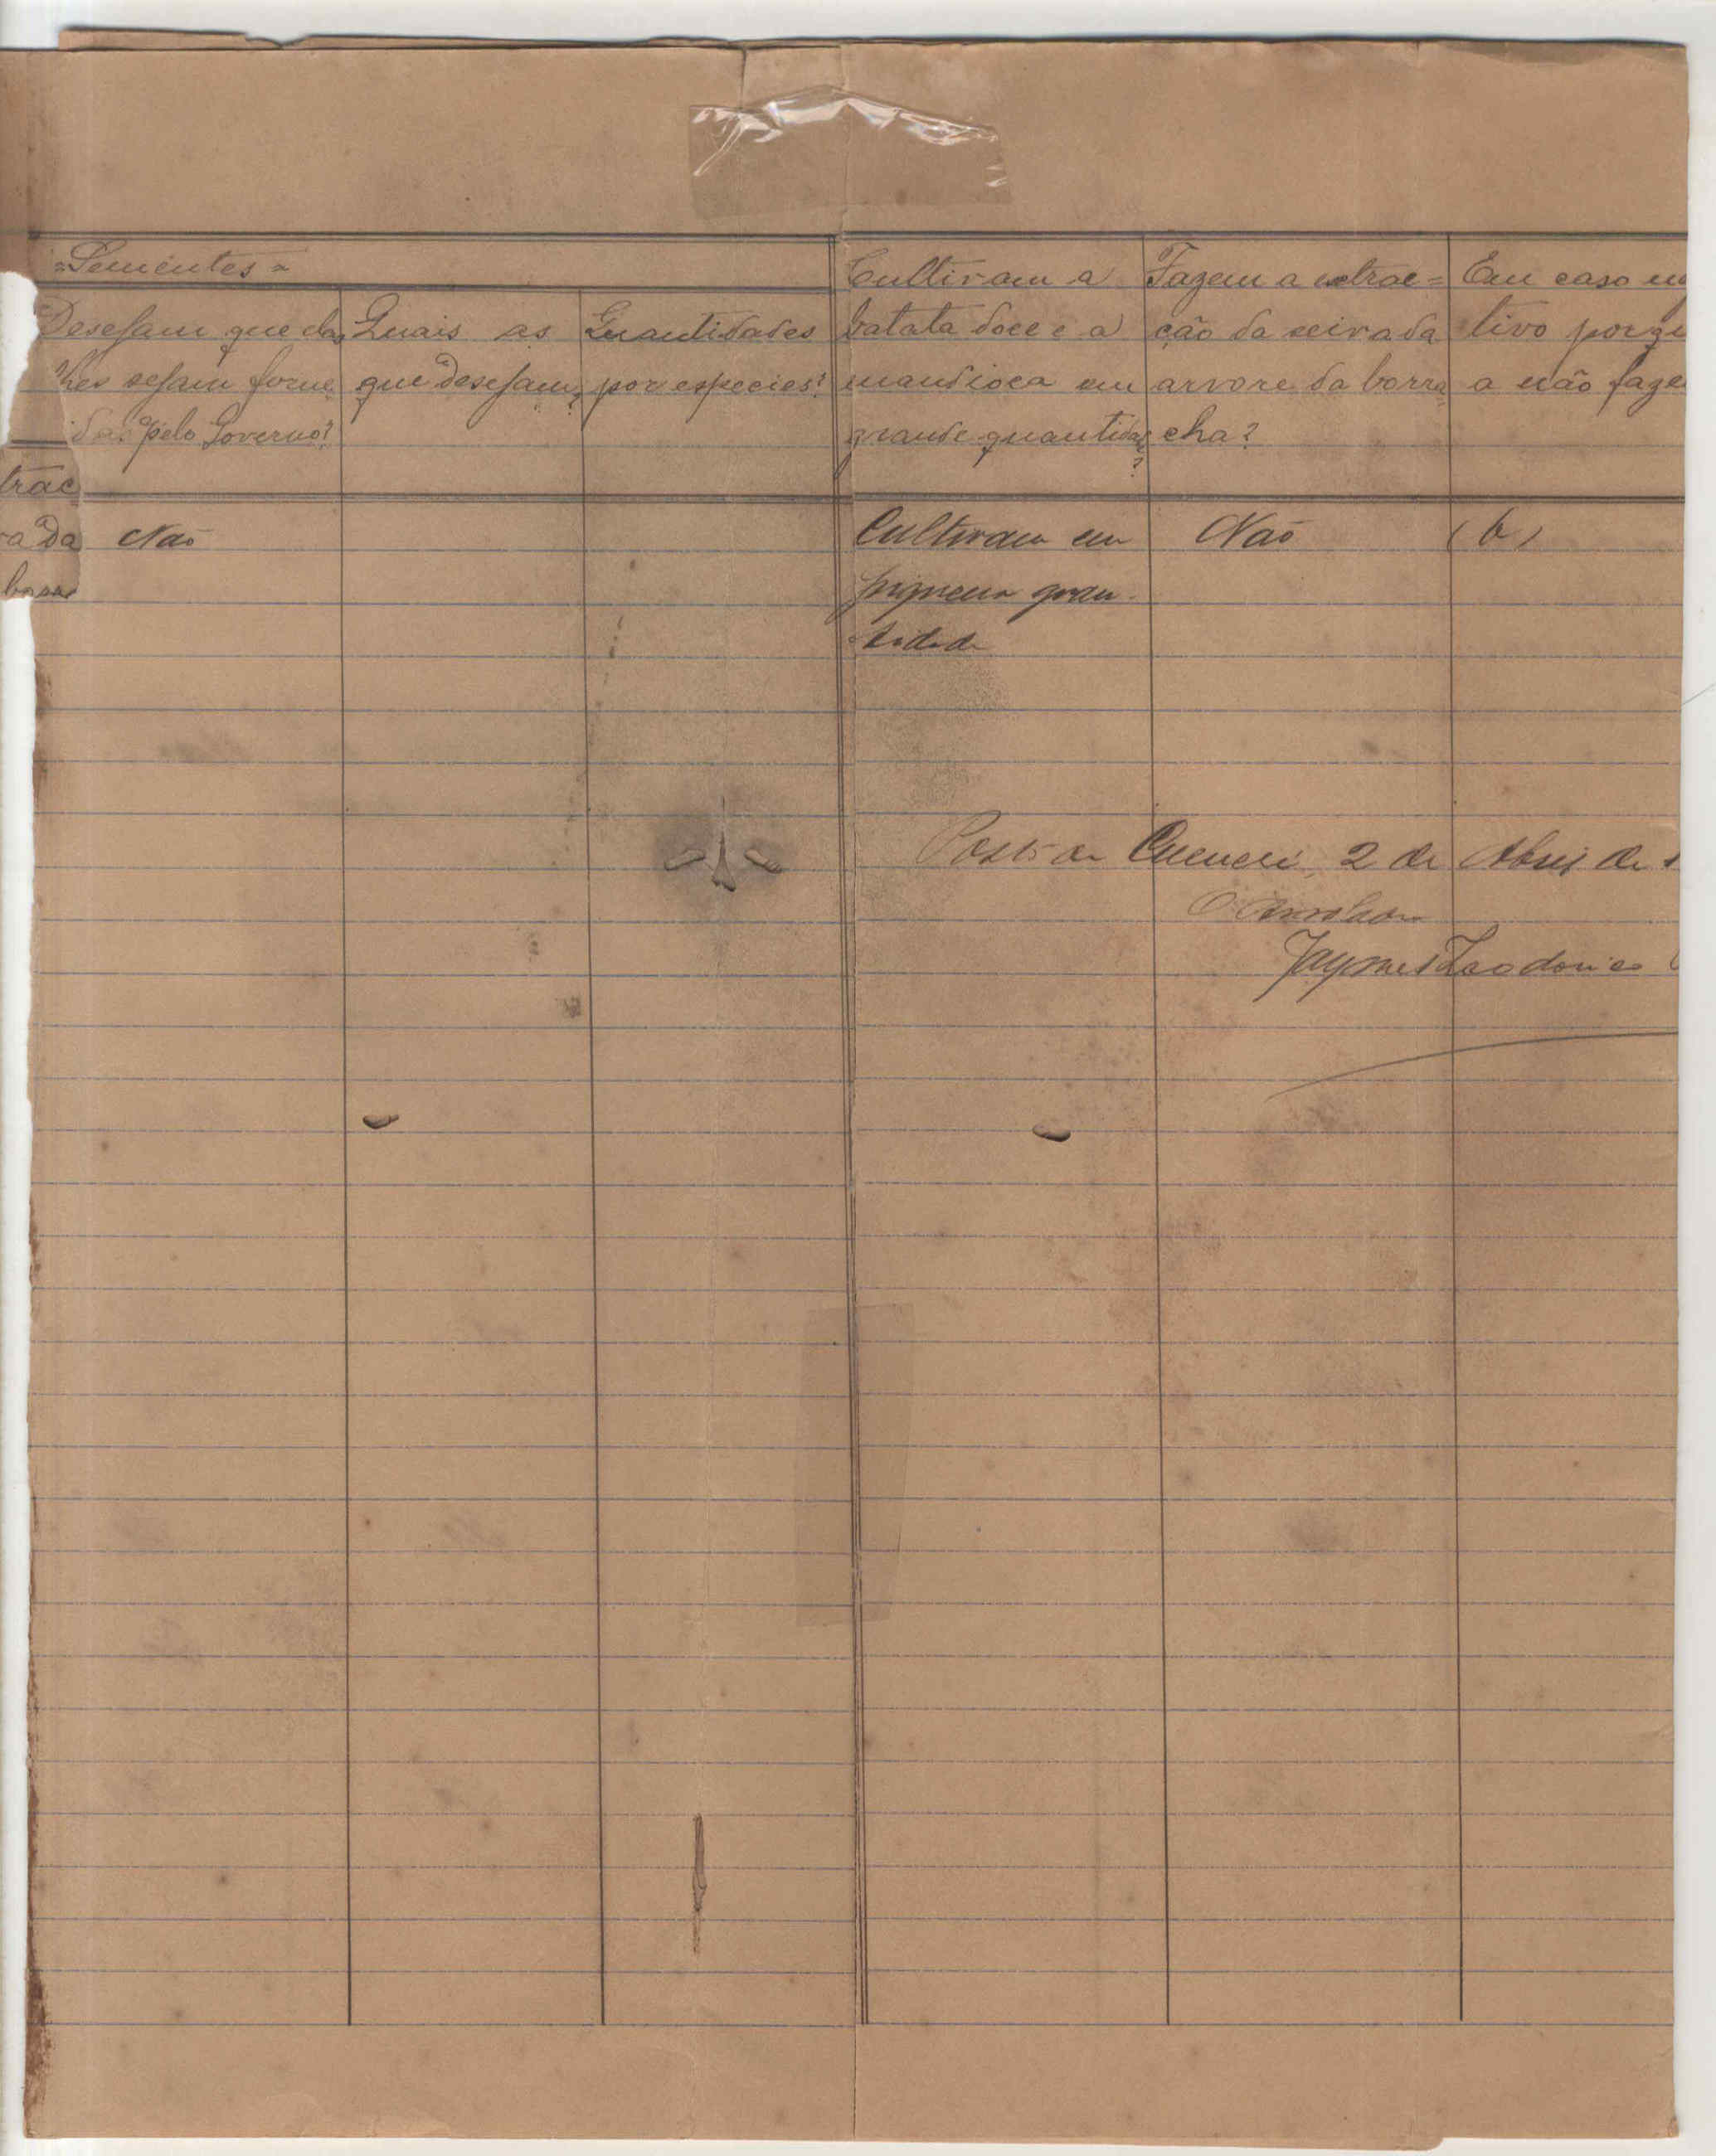 =Sementes=
Desejam que da
lhes sejam forne
das pelo Governo?
Quais as
que desejam?
Quantidades
por especies?
Cultivam a
batata doce e a
mandioca em
grande quantidade
?
Fazem a extrac=
ção da seiva da
arvore da borra=
cha?
Em caso ne
tivo porqu
a não faze
trac
ra da
borra
Não
Cultivam em
piquena quan-
tidade
Não
(b)
Posto de 2 de Abril de 1
O
Jayme Leodorico